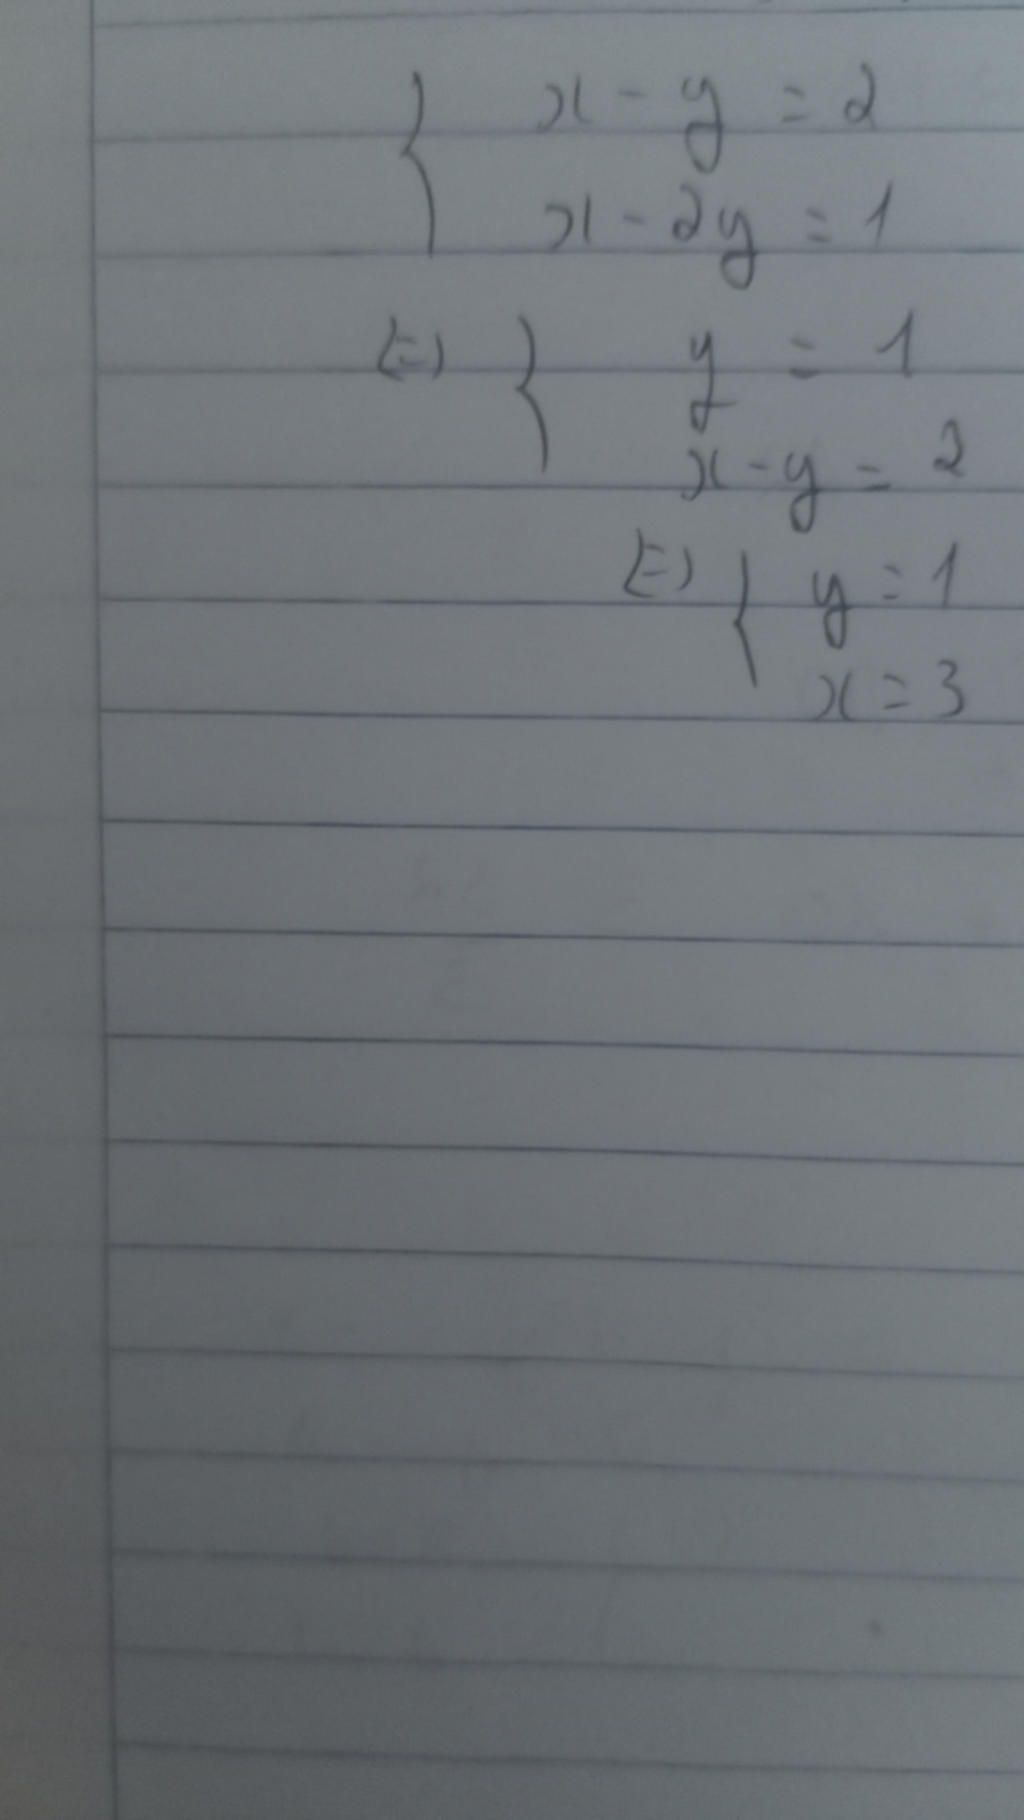 { x - y = 2
x - 2y = 1
(=) { y = 1
x - y = 2
(=) { y = 1
x = 3